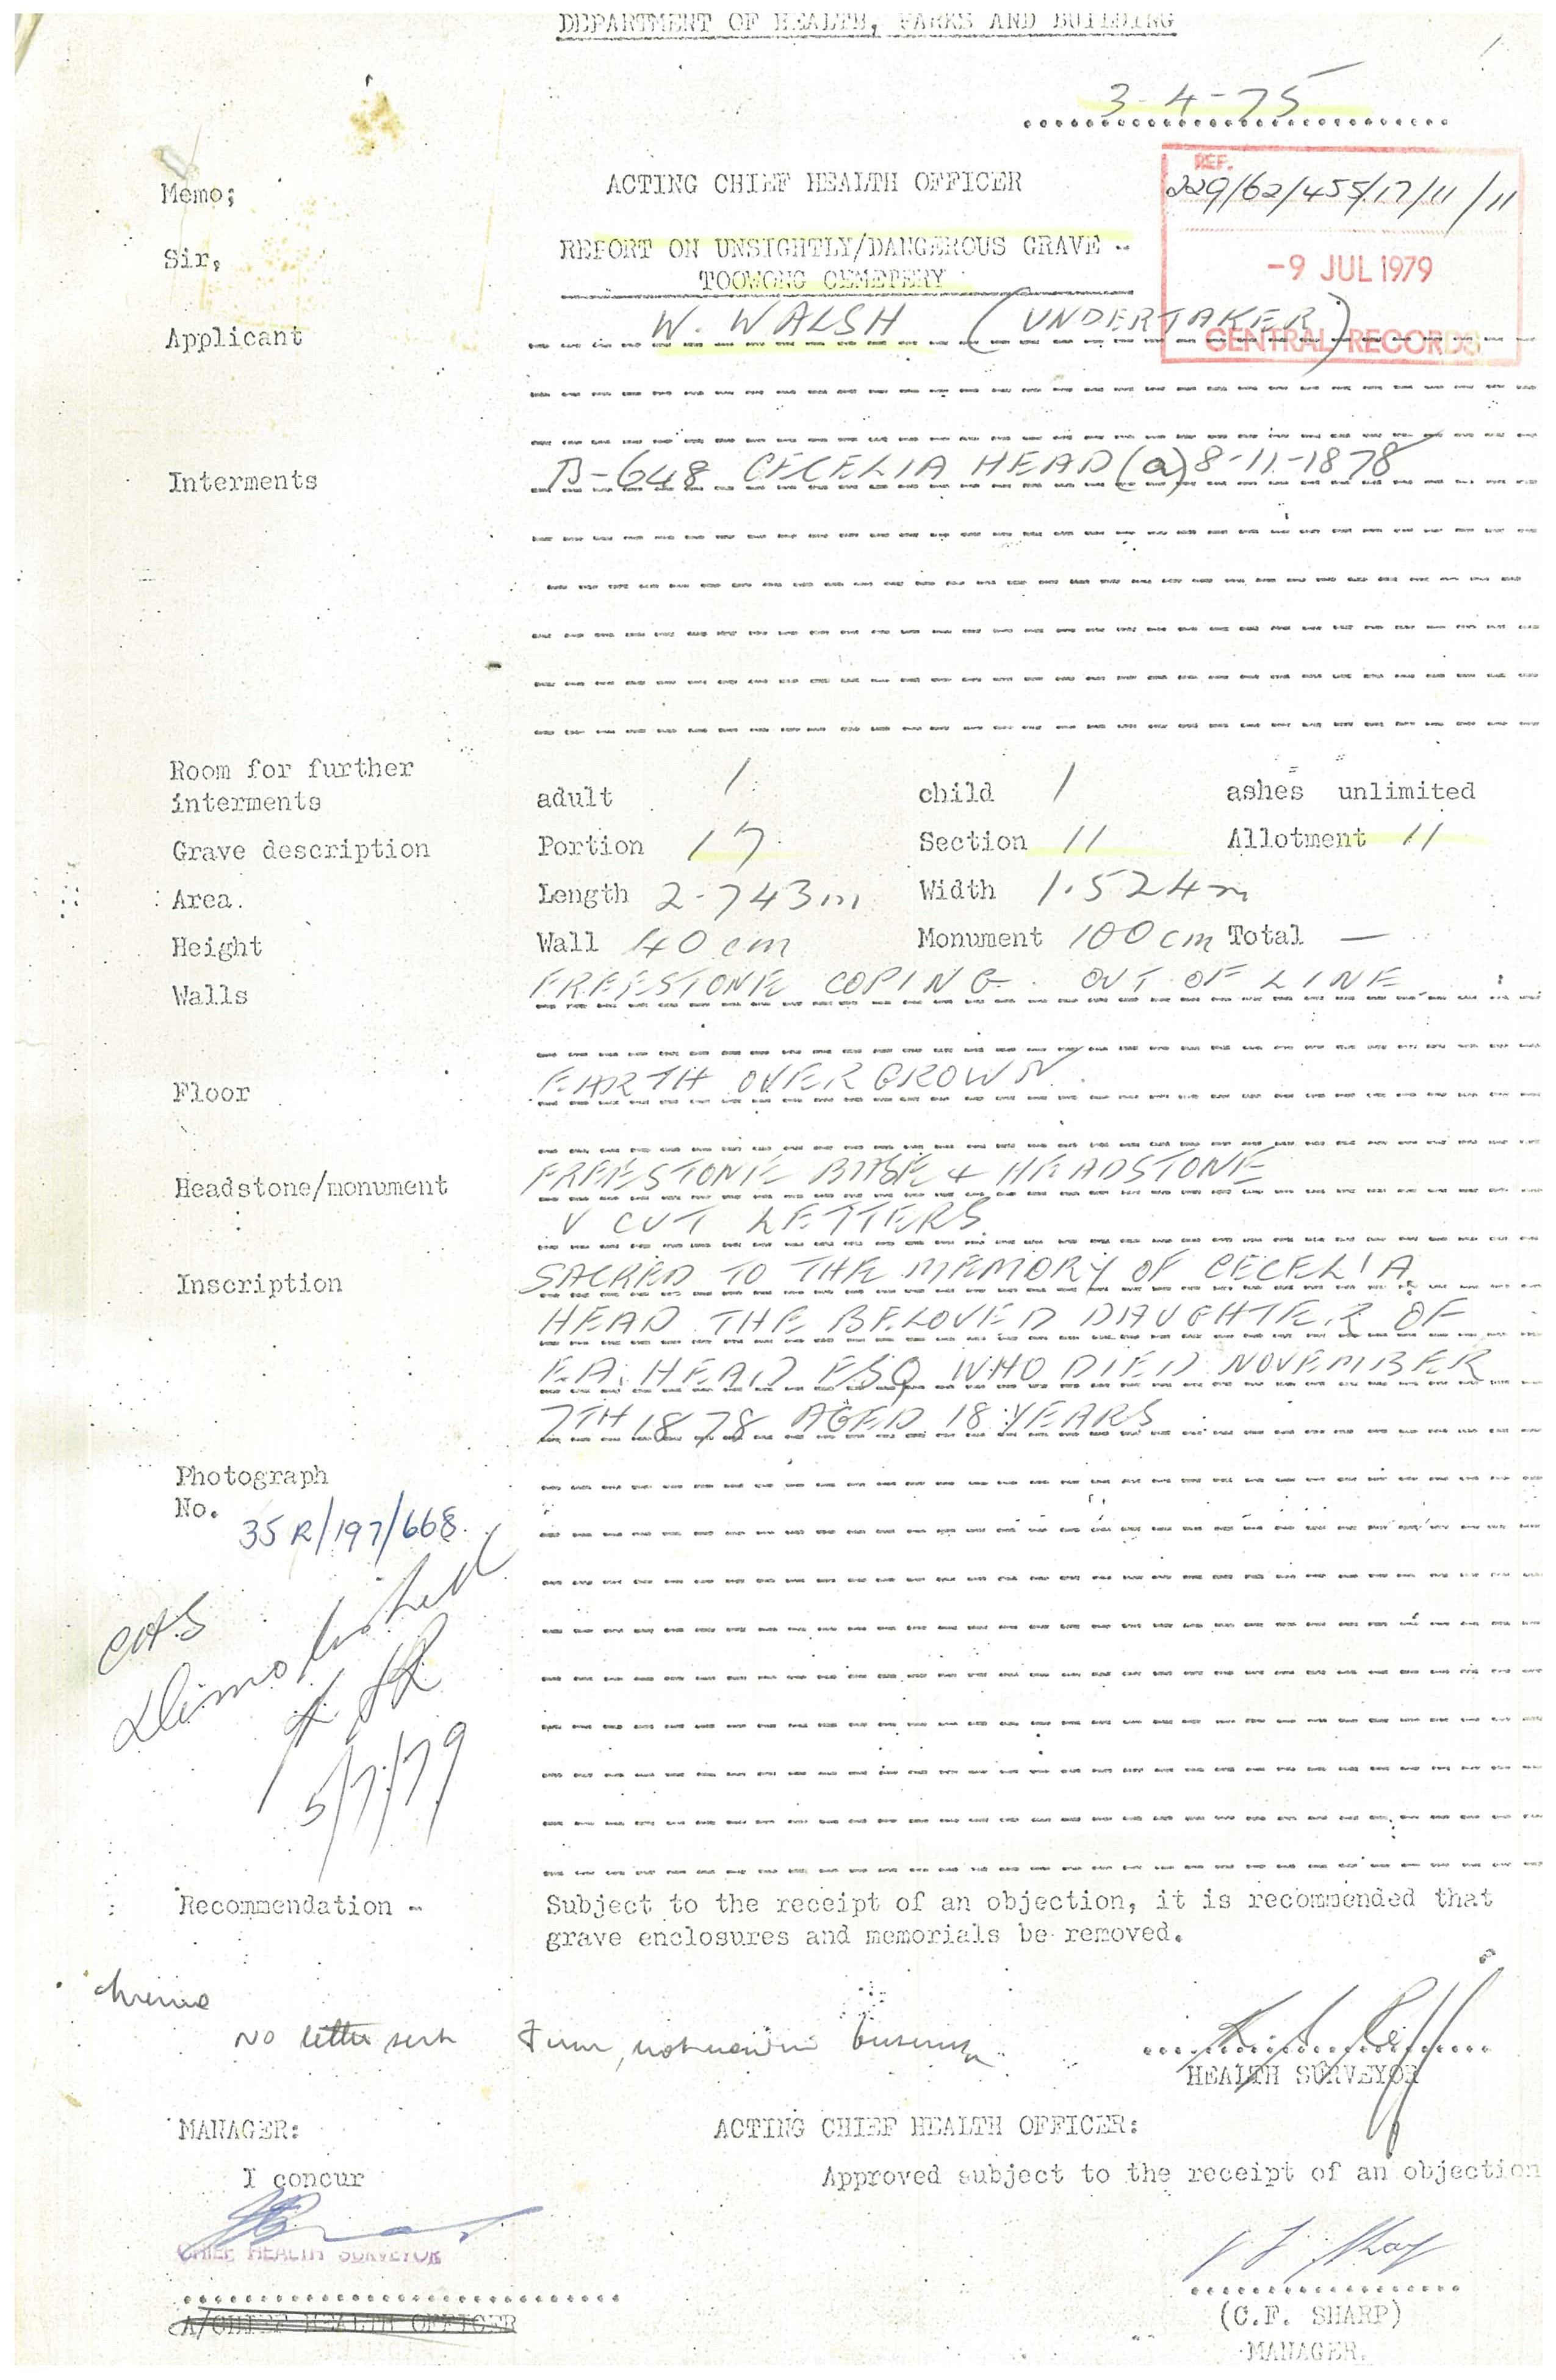 DEPARTMENT OF HEALTH, PARKS AND BUILDING
3-4-75
REF.
229/62/455/17/11/11
-9 JUL 1979
CENTRAL RECORDS
Memo; ACTING CHIEF HEALTH OFFICER
Sir, REPORT ON UNSIGHTLY/DANGEROUS GRAVE -
TOOWONG CEMETERY
Applicant W. WALSH (UNDERTAKER)
Interments B-648 CECELIA HEAD (a) 8-11-1878
Room for further
interments adult 1 child 1 ashes unlimited
Grave description Portion 17 Section 11 Allotment 11
Area. Length 2.743m Width 1.524m
Height Wall 40 cm Monument 100 cm Total —
Walls FREESTONE COPING. OUT OF LINE
Floor EARTH OVERGROWN.
Headstone/monument FREESTONE BASE + HEADSTONE
V CUT LETTERS
Inscription SACRED TO THE MEMORY OF CECELIA
HEAD THE BELOVED DAUGHTER OF
E.A. HEAD ESQ WHO DIED NOVEMBER
7TH 1878 AGED 18 YEARS
Photograph
No. 35R/197/668.
CHS
Demolished
5/7/79
Recommendation - Subject to the receipt of an objection, it is recommended that
grave enclosures and memorials be removed.
No letter sent Firm, not business
HEALTH SURVEYOR
MANAGER: ACTING CHIEF HEALTH OFFICER:
I concur Approved subject to the receipt of an objection
CHIEF HEALTH SURVEYOR
A/CHIEF HEALTH OFFICER
(C.F. SHARP)
MANAGER.